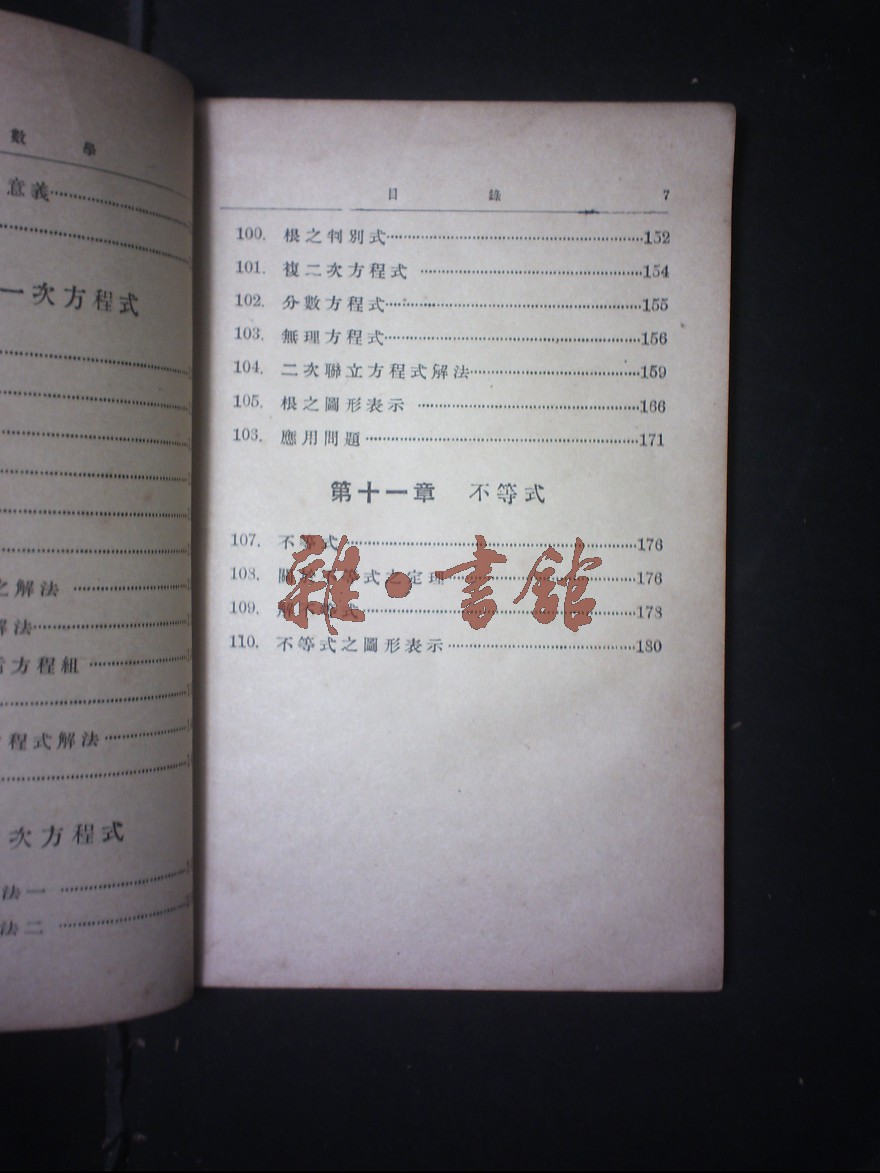 數 學
意義
一次方程式
之解法
解法
方程組
程式解法
次方程式
法一
法二
目 錄 7
100. 根之判別式 152
101. 複二次方程式 154
102. 分數方程式 155
103. 無理方程式 156
104. 二次聯立方程式解法 159
105. 根之圖形表示 166
103. 應用問題 171
第十一章 不等式
107. 不等式 176
108. 關於不等式之定理 176
109. 解不等式 178
110. 不等式之圖形表示 180
雜·書館